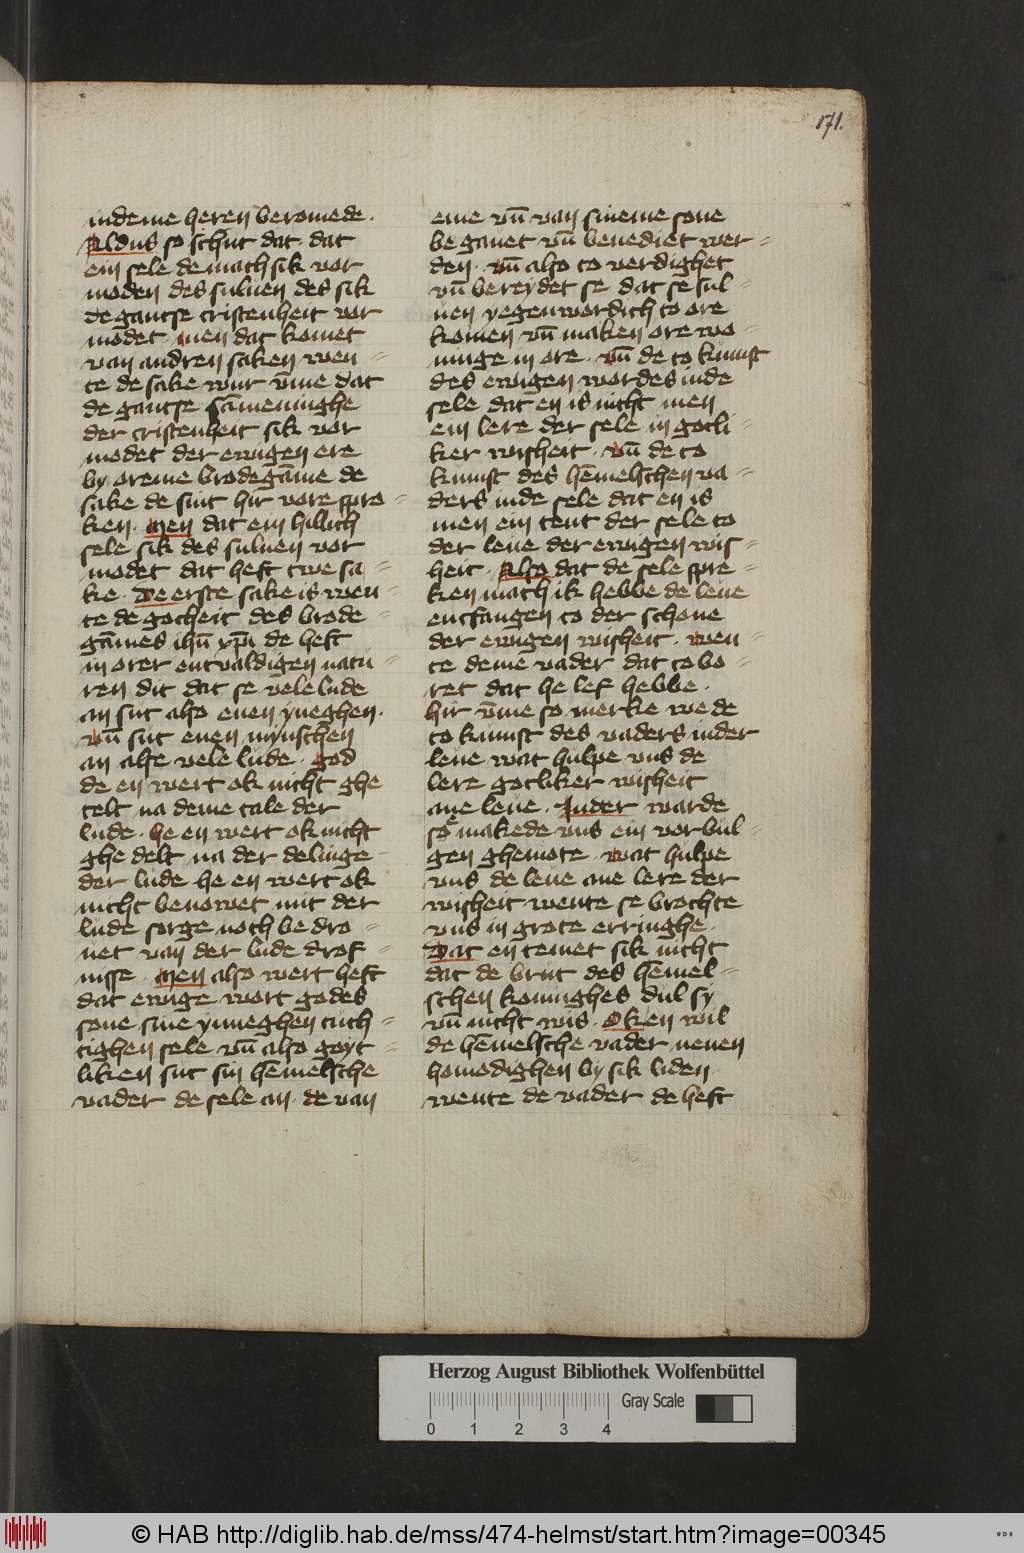 171.
indeme heren beromede.
Aldus so schut dat. dat
ein sele de mach sik vor
moden des suluen des sik
de gantse cristenheit vor
modet. men dat komet
van andren saken wen=
te de sake wur v̄me dat
de gantse sāmeninghe
der cristenheit sik vor
modet der ewigen ere
by oreme brodegāme de
sake de sint hir vore spro=
ken. Men dat ein hillich
sele sik des suluen vor
modet dat heft twe sa=
ke. De erste sake is wen=
te de gotheit des brode=
gāmes ihū xpī de heft
in orer entualdigen natu=
ren dit dat se vele lude
an sut also euen ẏneghen.
vn̄ sut euen mẏnschen
an alse vele lude. god
de en wert ok nicht ghe
telt na deme tale der
lude. he en wert ok nicht
ghe delt na der delinge
der lude he en wert ok
nicht benowet mit der
lude sorge noch be dro=
uet van der lude drof=
nisse. Men also wert heft
dat ewige wort godes
sone sine ynneghen tuch=
tighen sele vn̄ also goyt=
liken sut sin hēmelsche
vader de sele an. de van
eme vn̄ van sineme sone
be gauet vn̄ benediet wer=
den. vn̄ also to verdighet
vn̄ bereydet se dat se sul=
uen yegenwordich to ore
komen vn̄ maken ore wo=
ninge in ore. vn̄ de to kumst
des ewigen wordes inde
sele dat en is nicht men
ein lere der sele in gotli=
ker wisheit. vn̄ de to
kumst des hēmelschen va=
ders inde sele dat en is
men ein tent der sele to
der leue der ewigen wis=
heit. Also dat de sele spre=
ken mach ik hebbe de leue
entfangen to der schone
der ewigen wisheit. wen=
te deme vader dat to bo=
ret dat he lef hebbe.
hir v̄me so merke we de
to kumst des vaders inder
leue wat hulpe vns de
lere gotliker wisheit
ane leue. Inder warde
so makede vns ein vorbul=
gen ghemote. wat hulpe
vns de leue ane lere der
wisheit wente se brochte
vns in grote erringhe.
Dat en temet sik nicht
dat de brut des hēmel=
schen koninghes dul sy
vn̄ nicht wis. Ok en wil
de hēmelsche vader nenen
homodighen by sik liden.
wente de vader de heft
Herzog August Bibliothek Wolfenbüttel
Gray Scale
0 1 2 3 4
© HAB http://diglib.hab.de/mss/474-helmst/start.htm?image=00345